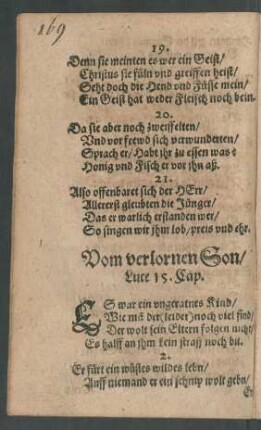 169
19.
Denn sie meinten es wer ein Geist/
Christus sie füln vnd greiffen heist/
Seht doch die Hend vnd Füsse mein/
Ein Geist hat weder Fleisch noch bein.
20.
Da sie aber noch zweiffelten/
Vnd vor frewd sich verwunderten/
Sprach er/ Habt jhr zu essen was?
Honig vnd Fisch er vor jhn aß.
21.
Also offenbaret sich der HErr/
Allererst gleubten die Jünger/
Das er warlich erstanden wer/
So singen wir jhm lob/ preis vnd ehr.
Vom verlornen Son/
Luce 15. Cap.
ES war ein vngeratnes Kind/
Wie mā der (leider) noch viel find/
Der wolt sein Eltern folgen nicht/
Es halff an jhm kein straff noch bit.
2.
Er fürt ein wüstes wildes lebn/
Auff niemand er ein schnip wolt gebn/
Er